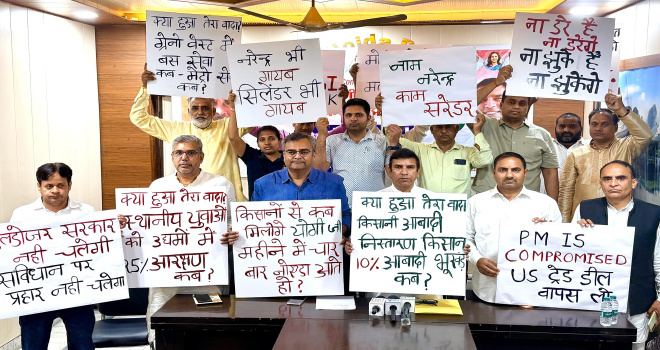 क्या हुआ तेरा वादा?
ग्रेनो वेस्ट में
बस सेवा
कब - मेट्रो से
कब?
नरेन्द्र भी
गायब
सिलेंडर भी
गायब
नाम नरेन्द्र
काम सरेंडर
ना डरे हैं
ना डरेंगे
ना झुके हैं
ना झुकेंगे
सरकार
नही चलेगी
संविधान पर
प्रहार नही चलेगा
क्या हुआ तेरा वादा?
स्थानीय युवाओं
को उद्यमों में
आरक्षण
कब?
किसानों से कब
मिलोगे योगी जी
महीने में चार
बार नोएडा आते
हो?
क्या हुआ तेरा वादा
किसानी आबादी
निस्तारण किसान
10% आबादी भूखंड
कब?
PM IS
COMPROMISED
US ट्रेड डील
वापस लो